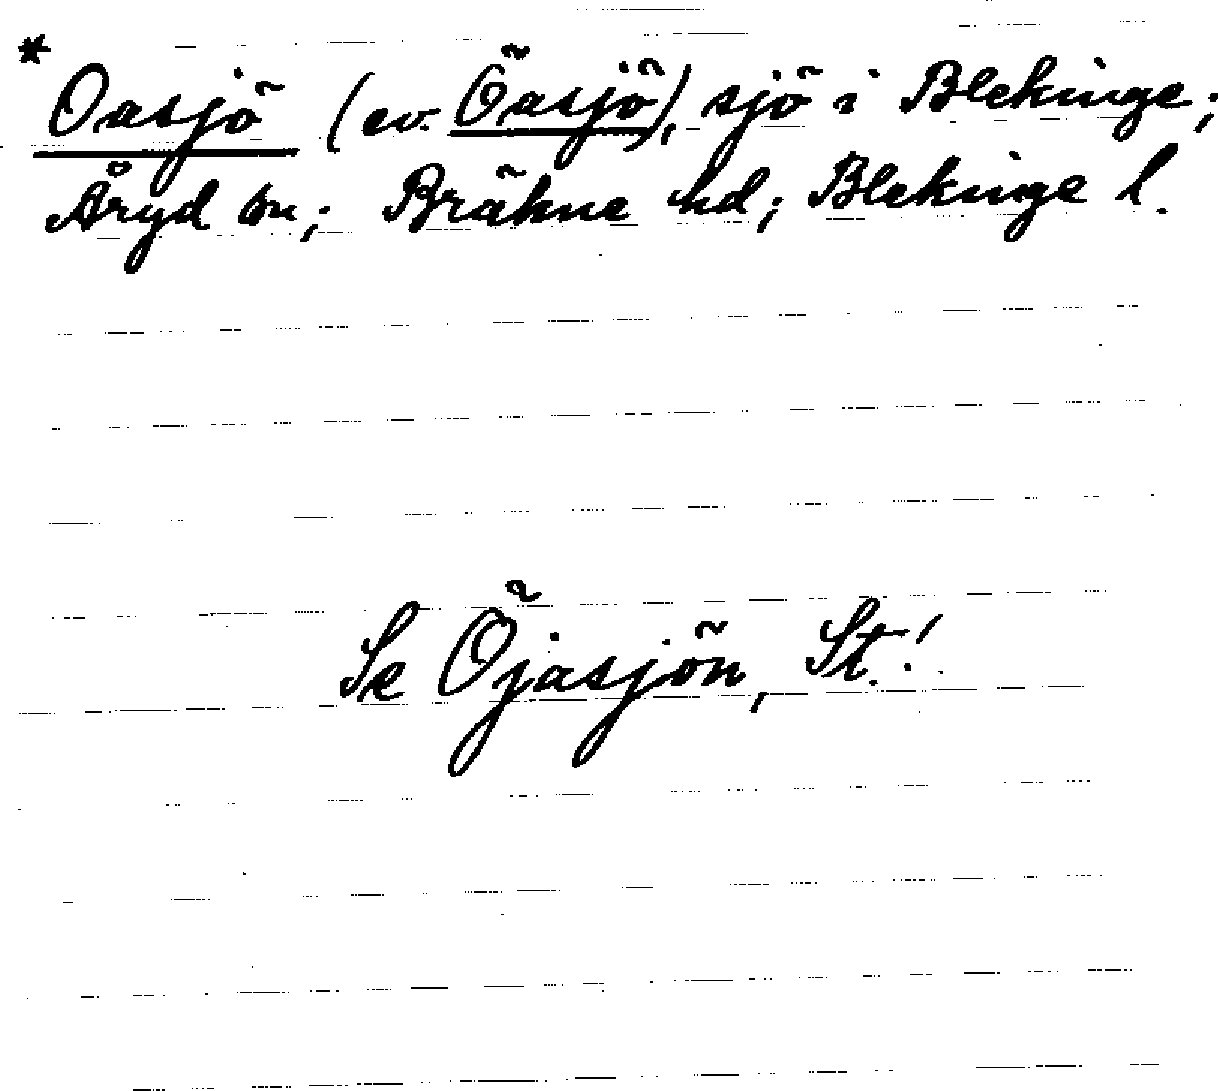 * Oasjö (ev. Öasjö), sjö i Blekinge;
Åryd sn; Brähne hd; Blekinge l.
Se Öjasjön, St.!